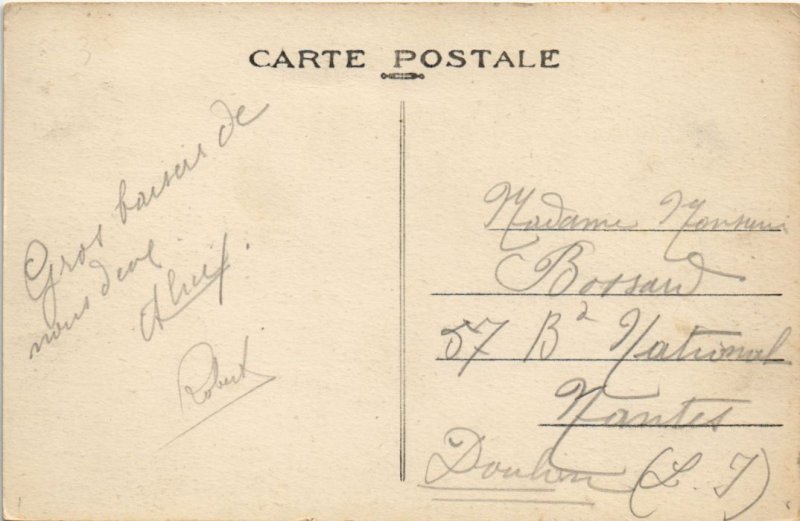 CARTE POSTALE
Gros baisers de
nous deux
Robert
Madame Monsieur
Bossard
57 Bd National
Nantes
(L. I)